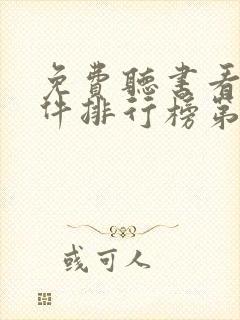 免費聽書看
件排行榜第
或可人